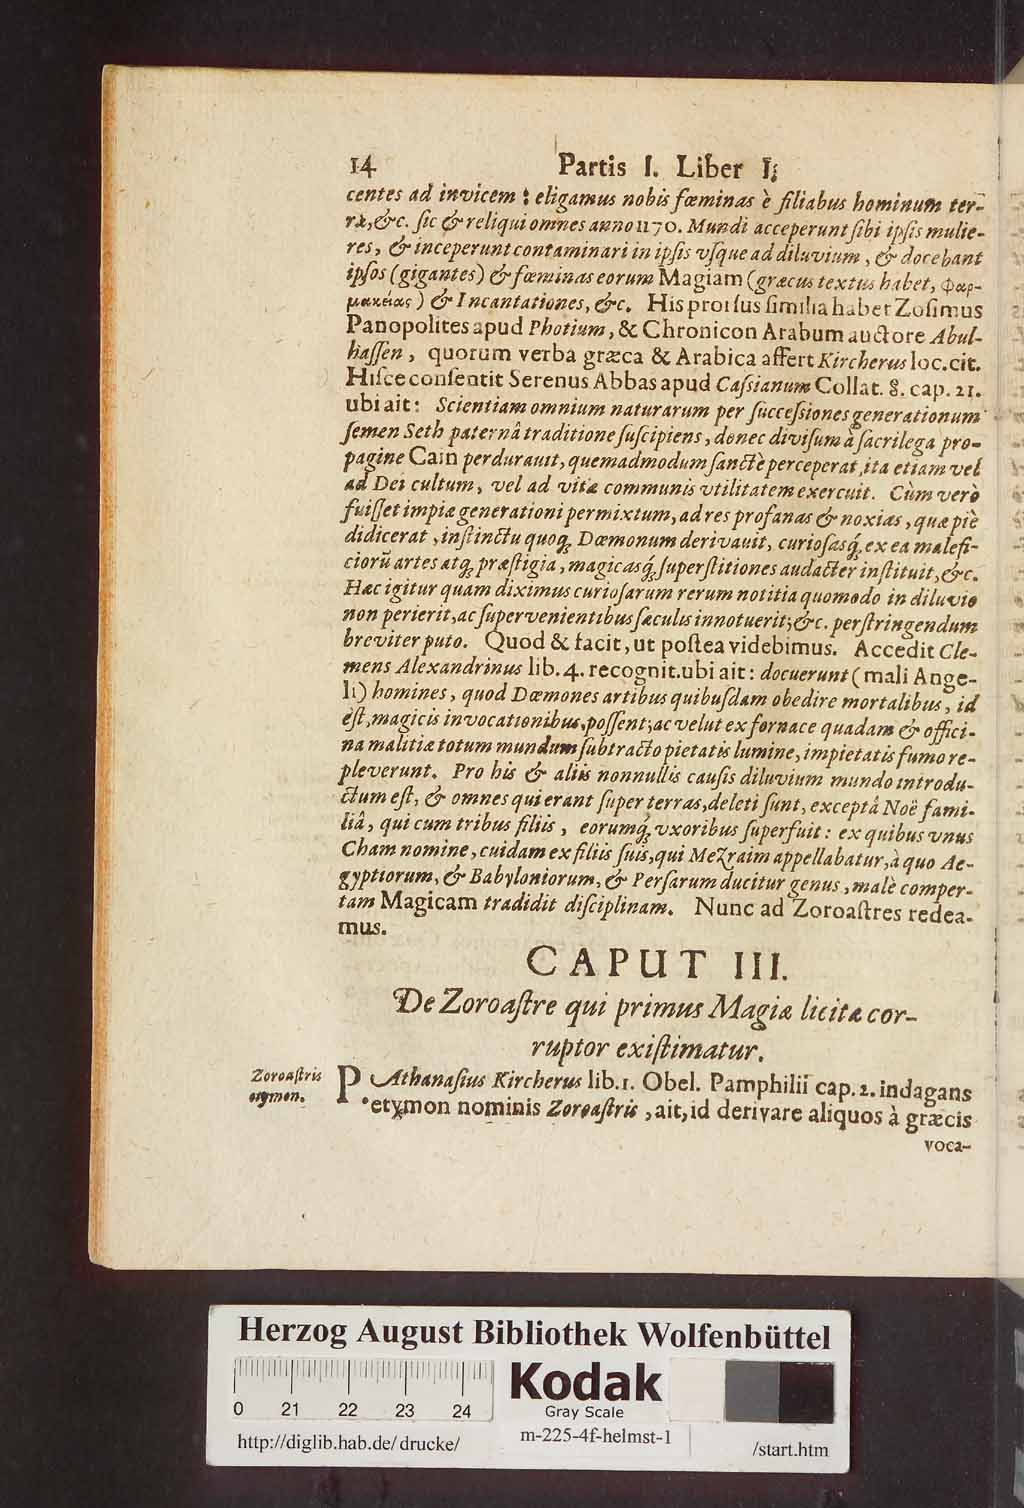 14 Partis I. Liber I.
centes ad invicem : eligamus nobis fœminas è filiabus hominum ter-
ræ, &c. ſic & reliqui omnes anno 1170. Mundi acceperunt ſibi ipſis mulie-
res, & inceperunt contaminari in ipſis vſque ad diluvium, & docebant
ipſos (gigantes) & fœminas eorum Magiam (græcus textus habet, φαρ-
μακείας) & Incantationes, &c. His prorſus ſimilia habet Zoſimus
Panopolites apud Photium, & Chronicon Arabum auctore Abul-
haſſen, quorum verba græca & Arabica affert Kircherus loc. cit.
Hiſce conſentit Serenus Abbas apud Caſsianum Collat. 8. cap. 21.
ubi ait: Scientiam omnium naturarum per ſucceſsiones generationum
ſemen Seth paternâ traditione ſuſcipiens, donec diviſum à ſacrilega pro-
pagine Cain perdurauit, quemadmodum ſanctè perceperat, ita etiam vel
ad Dei cultum, vel ad vitæ communis vtilitatem exercuit. Cùm verò
fuiſſet impiæ generationi permixtum, ad res profanas & noxias, quæ piè
didicerat, inſtinctu quoq; Dæmonum derivauit, curioſasq́; ex ea malefi-
ciorũ artes atq; præſtigia, magicasq́; ſuperſtitiones audacter inſtituit, &c.
Hæc igitur quam diximus curioſarum rerum notitia quomodo in diluvio
non perierit, ac ſupervenientibus ſæculis innotuerit; &c. perſtringendum
breviter puto. Quod & facit, ut poſtea videbimus. Accedit Cle-
mens Alexandrinus lib. 4. recognit. ubi ait: docuerunt (mali Ange-
li) homines, quod Dæmones artibus quibuſdam obedire mortalibus, id
eſt, magicis invocationibus, poſſent; ac velut ex fornace quadam & offici-
na malitiæ totum mundum ſubtracto pietatis lumine, impietatis fumo re-
pleverunt. Pro his & aliis nonnullis cauſis diluvium mundo introdu-
ctum eſt, & omnes qui erant ſuper terras, deleti ſunt, exceptâ Noë fami-
liâ, qui cum tribus filiis, eorumq́; vxoribus ſuperfuit: ex quibus vnus
Cham nomine, cuidam ex filiis ſuis, qui Mezraim appellabatur, à quo Ae-
gyptiorum, & Babyloniorum, & Perſarum ducitur genus, malè comper-
tam Magicam tradidit diſciplinam. Nunc ad Zoroaſtres redea-
mus.
CAPUT III.
De Zoroaſtre qui primus Magiæ licitæ cor-
ruptor exiſtimatur.
Zoroaſtris
etymon.
P. Athanaſius Kircherus lib. 1. Obel. Pamphilii cap. 2. indagans
etymon nominis Zoroaſtris, ait, id derivare aliquos à græcis
voca-
Herzog August Bibliothek Wolfenbüttel
0 21 22 23 24
Kodak
Gray Scale
http://diglib.hab.de/drucke/ m-225-4f-helmst-1 /start.htm